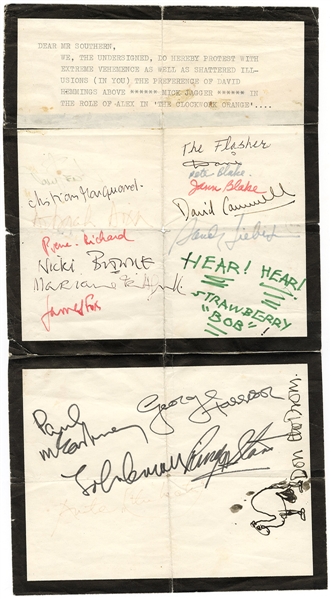 DEAR MR SOUTHERN,
WE, THE UNDERSIGNED, DO HEREBY PROTEST WITH
EXTREME VEHEMENCE AS WELL AS SHATTERED ILL-
USIONS (IN YOU) THE PREFERENCE OF DAVID
HEMMINGS ABOVE ****** MICK JAGGER ****** IN
THE ROLE OF ALEX IN 'THE CLOCKWORK ORANGE'....
Christian Marquand.
Richard
Nicki Browne
Marianne
James Fox
The Flasher
Peter Blake.
Jann Blake
David Cammell
Sandy Lieberson
HEAR! HEAR!
STRAWBERRY
"BOB"!
Paul
McCartney
George Harrison
John Lennon
Ringo Starr
Don